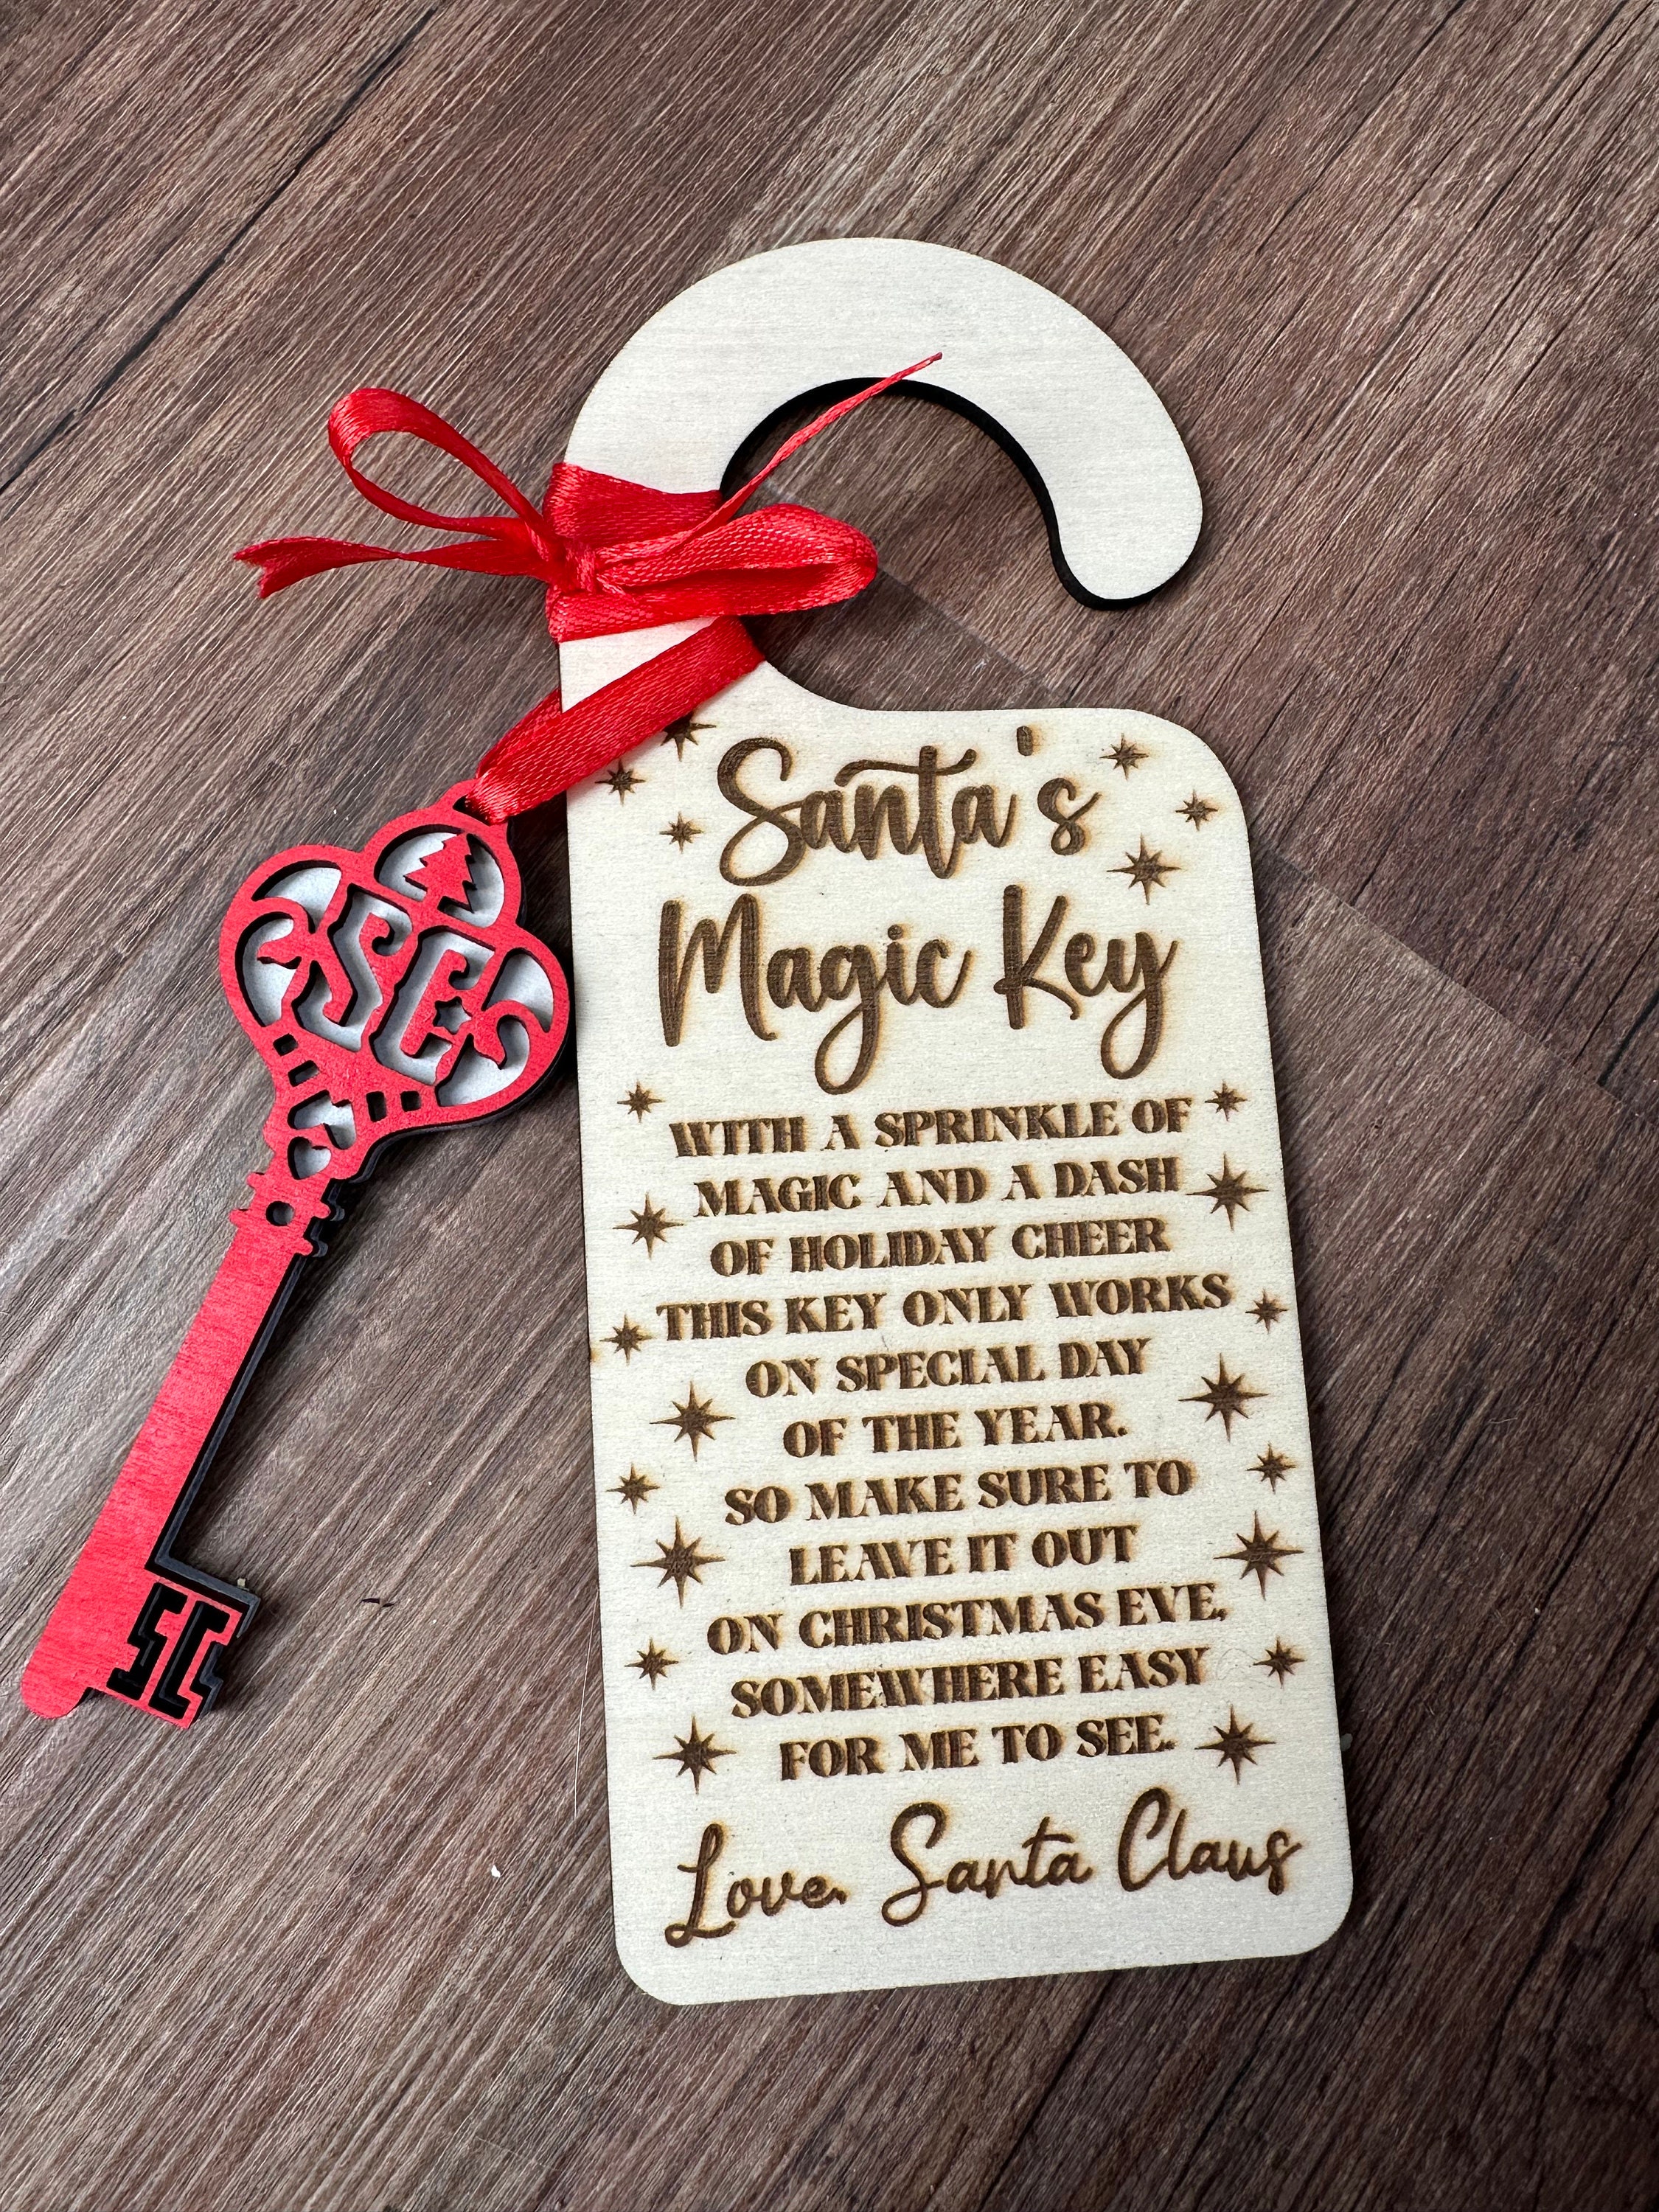 Santa's
Magic Key
WITH A SPRINKLE OF
MAGIC AND A DASH
OF HOLIDAY CHEER
THIS KEY ONLY WORKS
ON SPECIAL DAY
OF THE YEAR.
SO MAKE SURE TO
LEAVE IT OUT
ON CHRISTMAS EVE,
SOMEWHERE EASY
FOR ME TO SEE.
Love, Santa Claus
SC